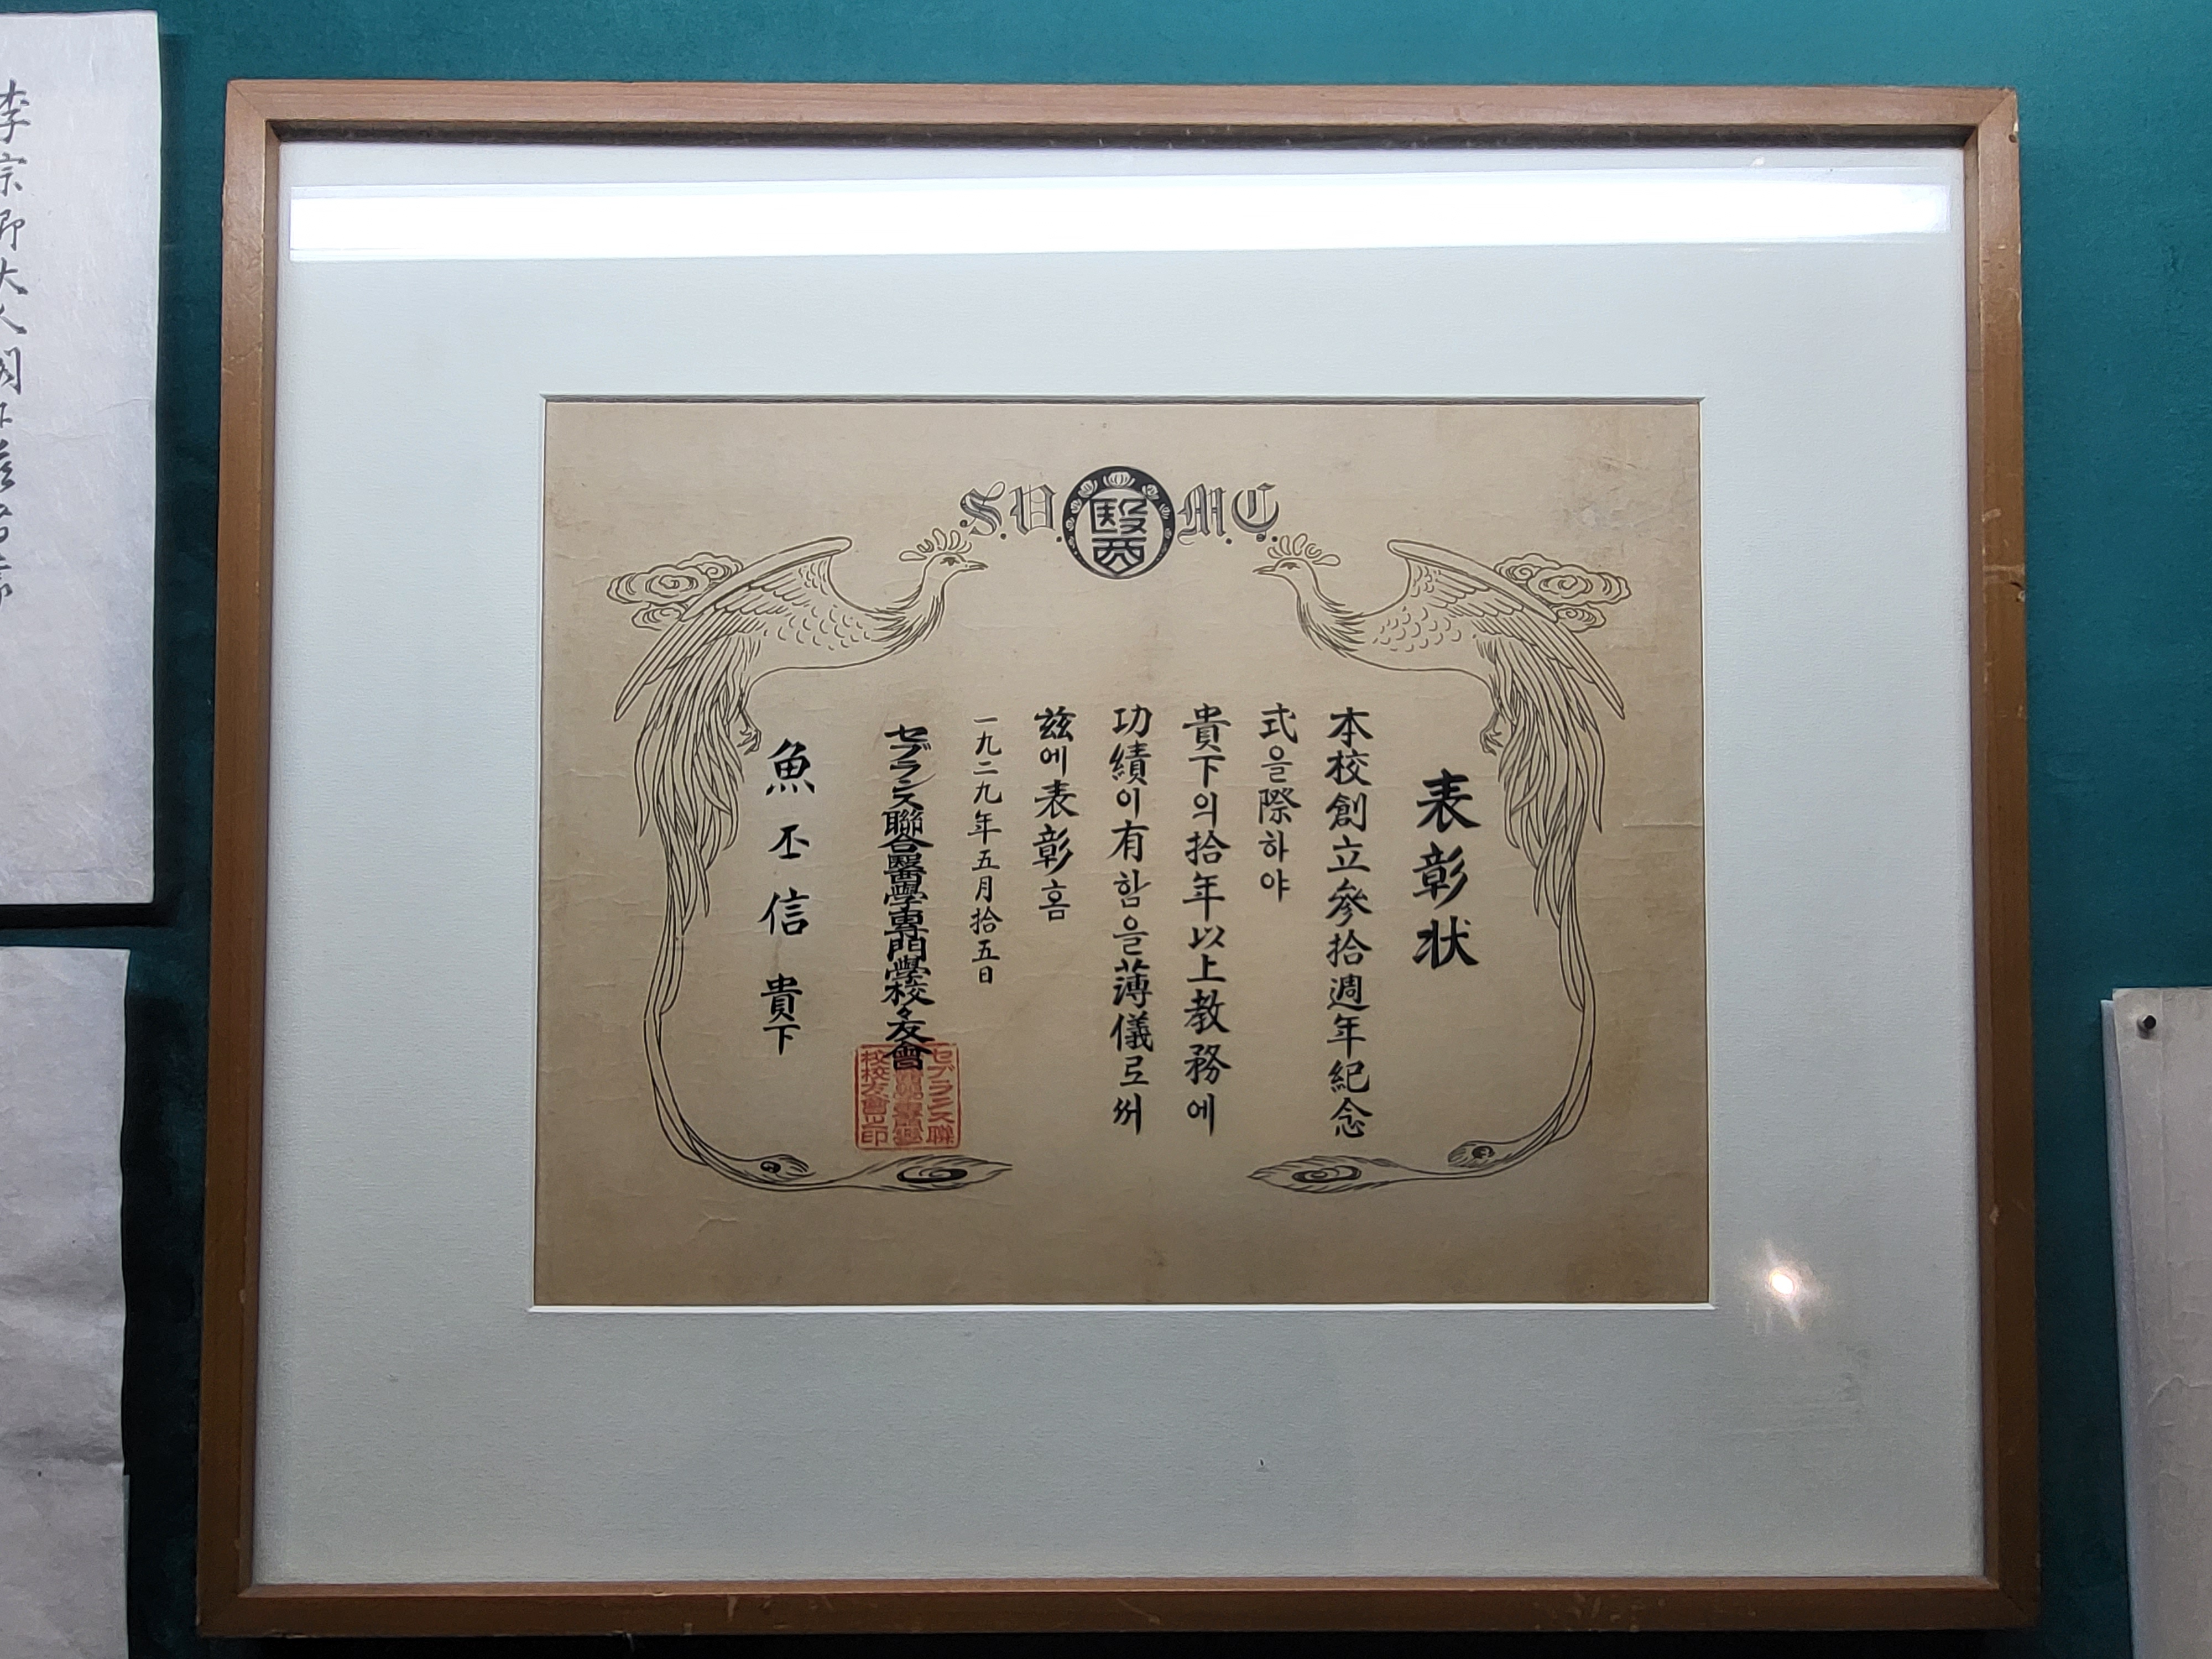 S.U.醫M.C.
表彰状
本校創立參拾週年紀念
式을際하야
貴下의拾年以上教務에
功績이有함을薄儀로써
玆에表彰홈
一九二九年五月拾五日
セブランス聯合醫學專門學校々友會
セブランス聯
校校友會之印
魚丕信 貴下
李宗
大